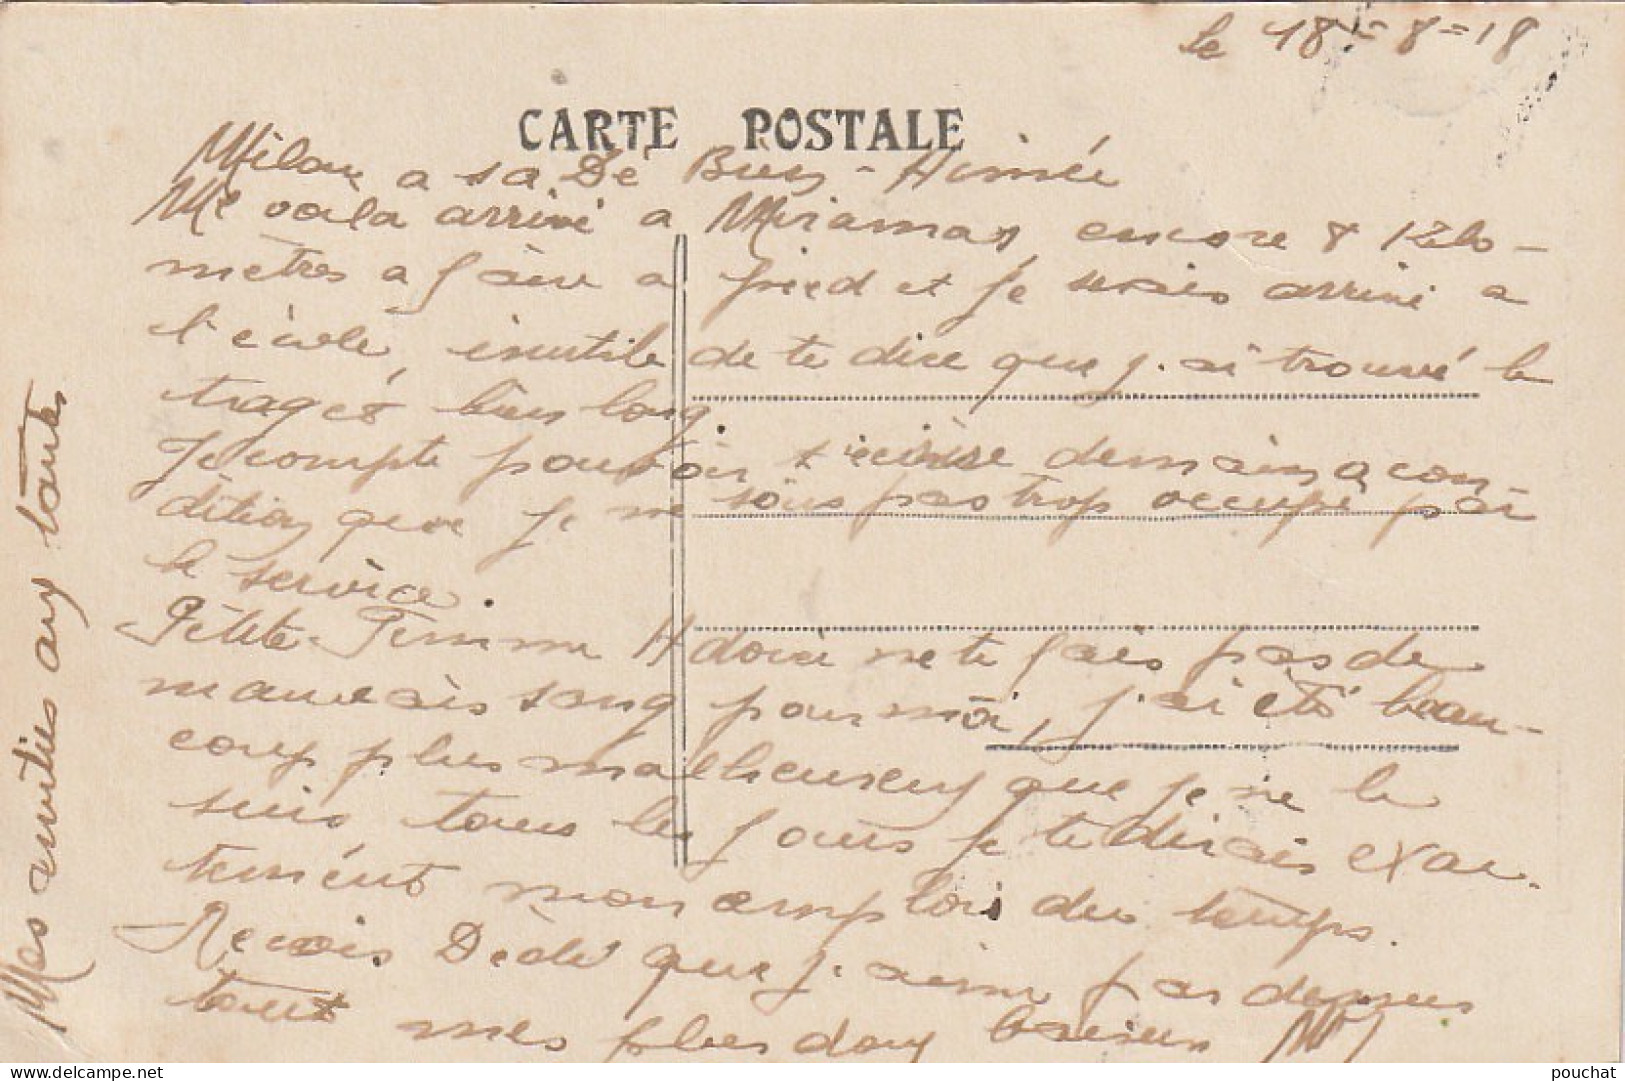 le 18-8-18
CARTE POSTALE
Milou a sa Dé Bien-Aimée
Me voila arrivé a Miramas, encore 8 Kilo-
mètres a faire a pied et je serais arrivé a
l'école, inutile de te dire que j'ai trouvé le
trages bien long.
Je compte pouvoir t'écrire demain a con-
dition que je ne sois pas trop occupé par
le service.
Petite Femme Adorée ne te fais pas de
mauvais sang pour moi, j'ai été beau-
coup plus malheureux que je ne le
suis tous les jours je te dirais exac-
tement mon emploi du temps.
Recois Dédé que j'aime par dessus
tout mes plus doux baisers
Mes amitiés aux tantes
pouchat